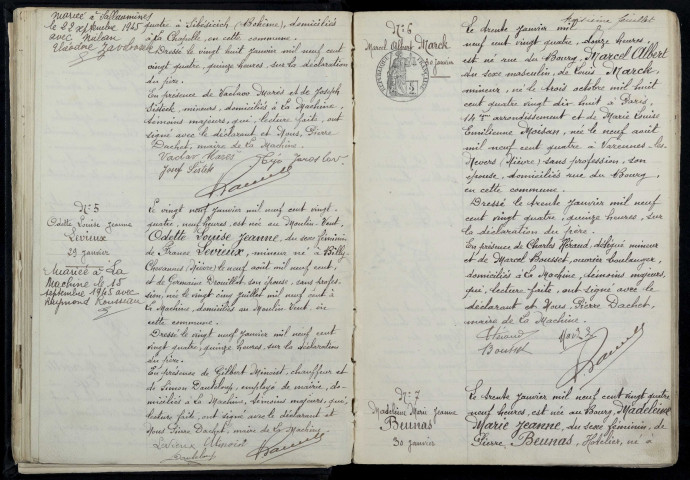 Mariée à Sallaumines
le 22 septembre 1945
avec
quatre à                (Bohême), domiciliés
à La Chapelle, en cette commune.
Dressé le vingt huit janvier mil neuf cent
vingt quatre, quinze heures, sur la déclaration
du père.
En présence de Vaclav Marès et de Joseph
mineurs, domiciliés à La Machine,
témoins majeurs, qui, lecture faite, ont
signé avec le déclarant et Nous, Pierre
Dachet, maire de La Machine.
Vaclav Mares
Josef
N° 5
Odette Louise Jeanne
Levieux
29 janvier
Mariée à La
Machine le 15
septembre 1945 avec
Raymond Rousseau
Le vingt neuf janvier mil neuf cent vingt-
quatre, neuf heures, est née au Moulin-Vent,
Odette Louise Jeanne, du sexe féminin
de France Levieux, mineur, né à Billy
Chevannes (Nièvre) le neuf août mil neuf cent,
et de Germaine Drouillet, son épouse, sans profes-
sion, née le vingt cinq juillet mil neuf cent à
La Machine, domiciliés au Moulin Vent, en
cette commune.
Dressé le vingt neuf janvier mil neuf cent
vingt quatre, quinze heures, sur la déclaration
du père.
En présence de Gilbert Minoist, chauffeur et
de Simon Dauteloup, employé de mairie, do-
miciliés à La Machine, témoins majeurs, qui,
lecture faite, ont signé avec le déclarant et
Nous Pierre Dachet, maire de La Machine.
Levieux Minoist
Dauteloup
N° 6
Marcel Albert Marck
30 janvier
Le trente janvier mil
neuf cent vingt quatre, douze heures,
est né rue du Bourg, Marcel Albert
du sexe masculin, de Louis Marck,
mineur, né le trois octobre mil huit
cent quatre vingt dix huit à Paris,
14me arrondissement et de Marie Louise
Emilienne              née le neuf août
mil neuf cent quatre à Varennes les
Nevers (Nièvre) sans profession, son
épouse, domiciliés rue du Bourg,
en cette commune.
Dressé le trente janvier mil neuf
cent vingt quatre, quinze heures, sur
la déclaration du père.
En présence de Charles Héraud, délégué mineur
et de Marcel Bousset, ouvrier boulanger,
domiciliés à La Machine, témoins majeurs,
qui, lecture faite, ont signé avec le
déclarant et Nous, Pierre Dachet,
maire de La Machine.
Héraud
Bousset
N° 7
Madeleine Marie Jeanne
Beunas
30 janvier
Le trente janvier mil neuf cent vingt quatre
neuf heures, est née au Bourg, Madeleine
Marie Jeanne, du sexe féminin, de
Pierre, Beunas, Hôtelier, né à